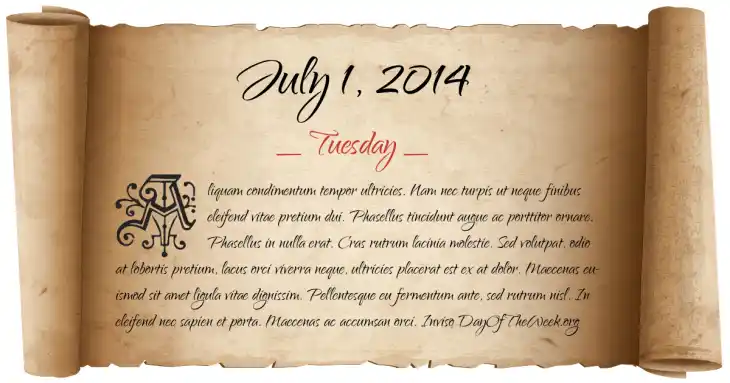 July 1, 2014
— Tuesday —
Aliquam condimentum tempor ultricies. Nam nec turpis ut neque finibus
eleifend vitae pretium dui. Phasellus tincidunt augue ac porttitor ornare.
Phasellus in nulla erat. Cras rutrum lacinia molestie. Sed volutpat, odio
at lobortis pretium, lacus orci viverra neque, ultricies placerat est ex at dolor. Maecenas eu-
ismod sit amet ligula vitae dignissim. Pellentesque eu fermentum ante, sed rutrum nisl. In
eleifend nec sapien et porta. Maecenas ac accumsan orci. Inviso DayOfTheWeek.org